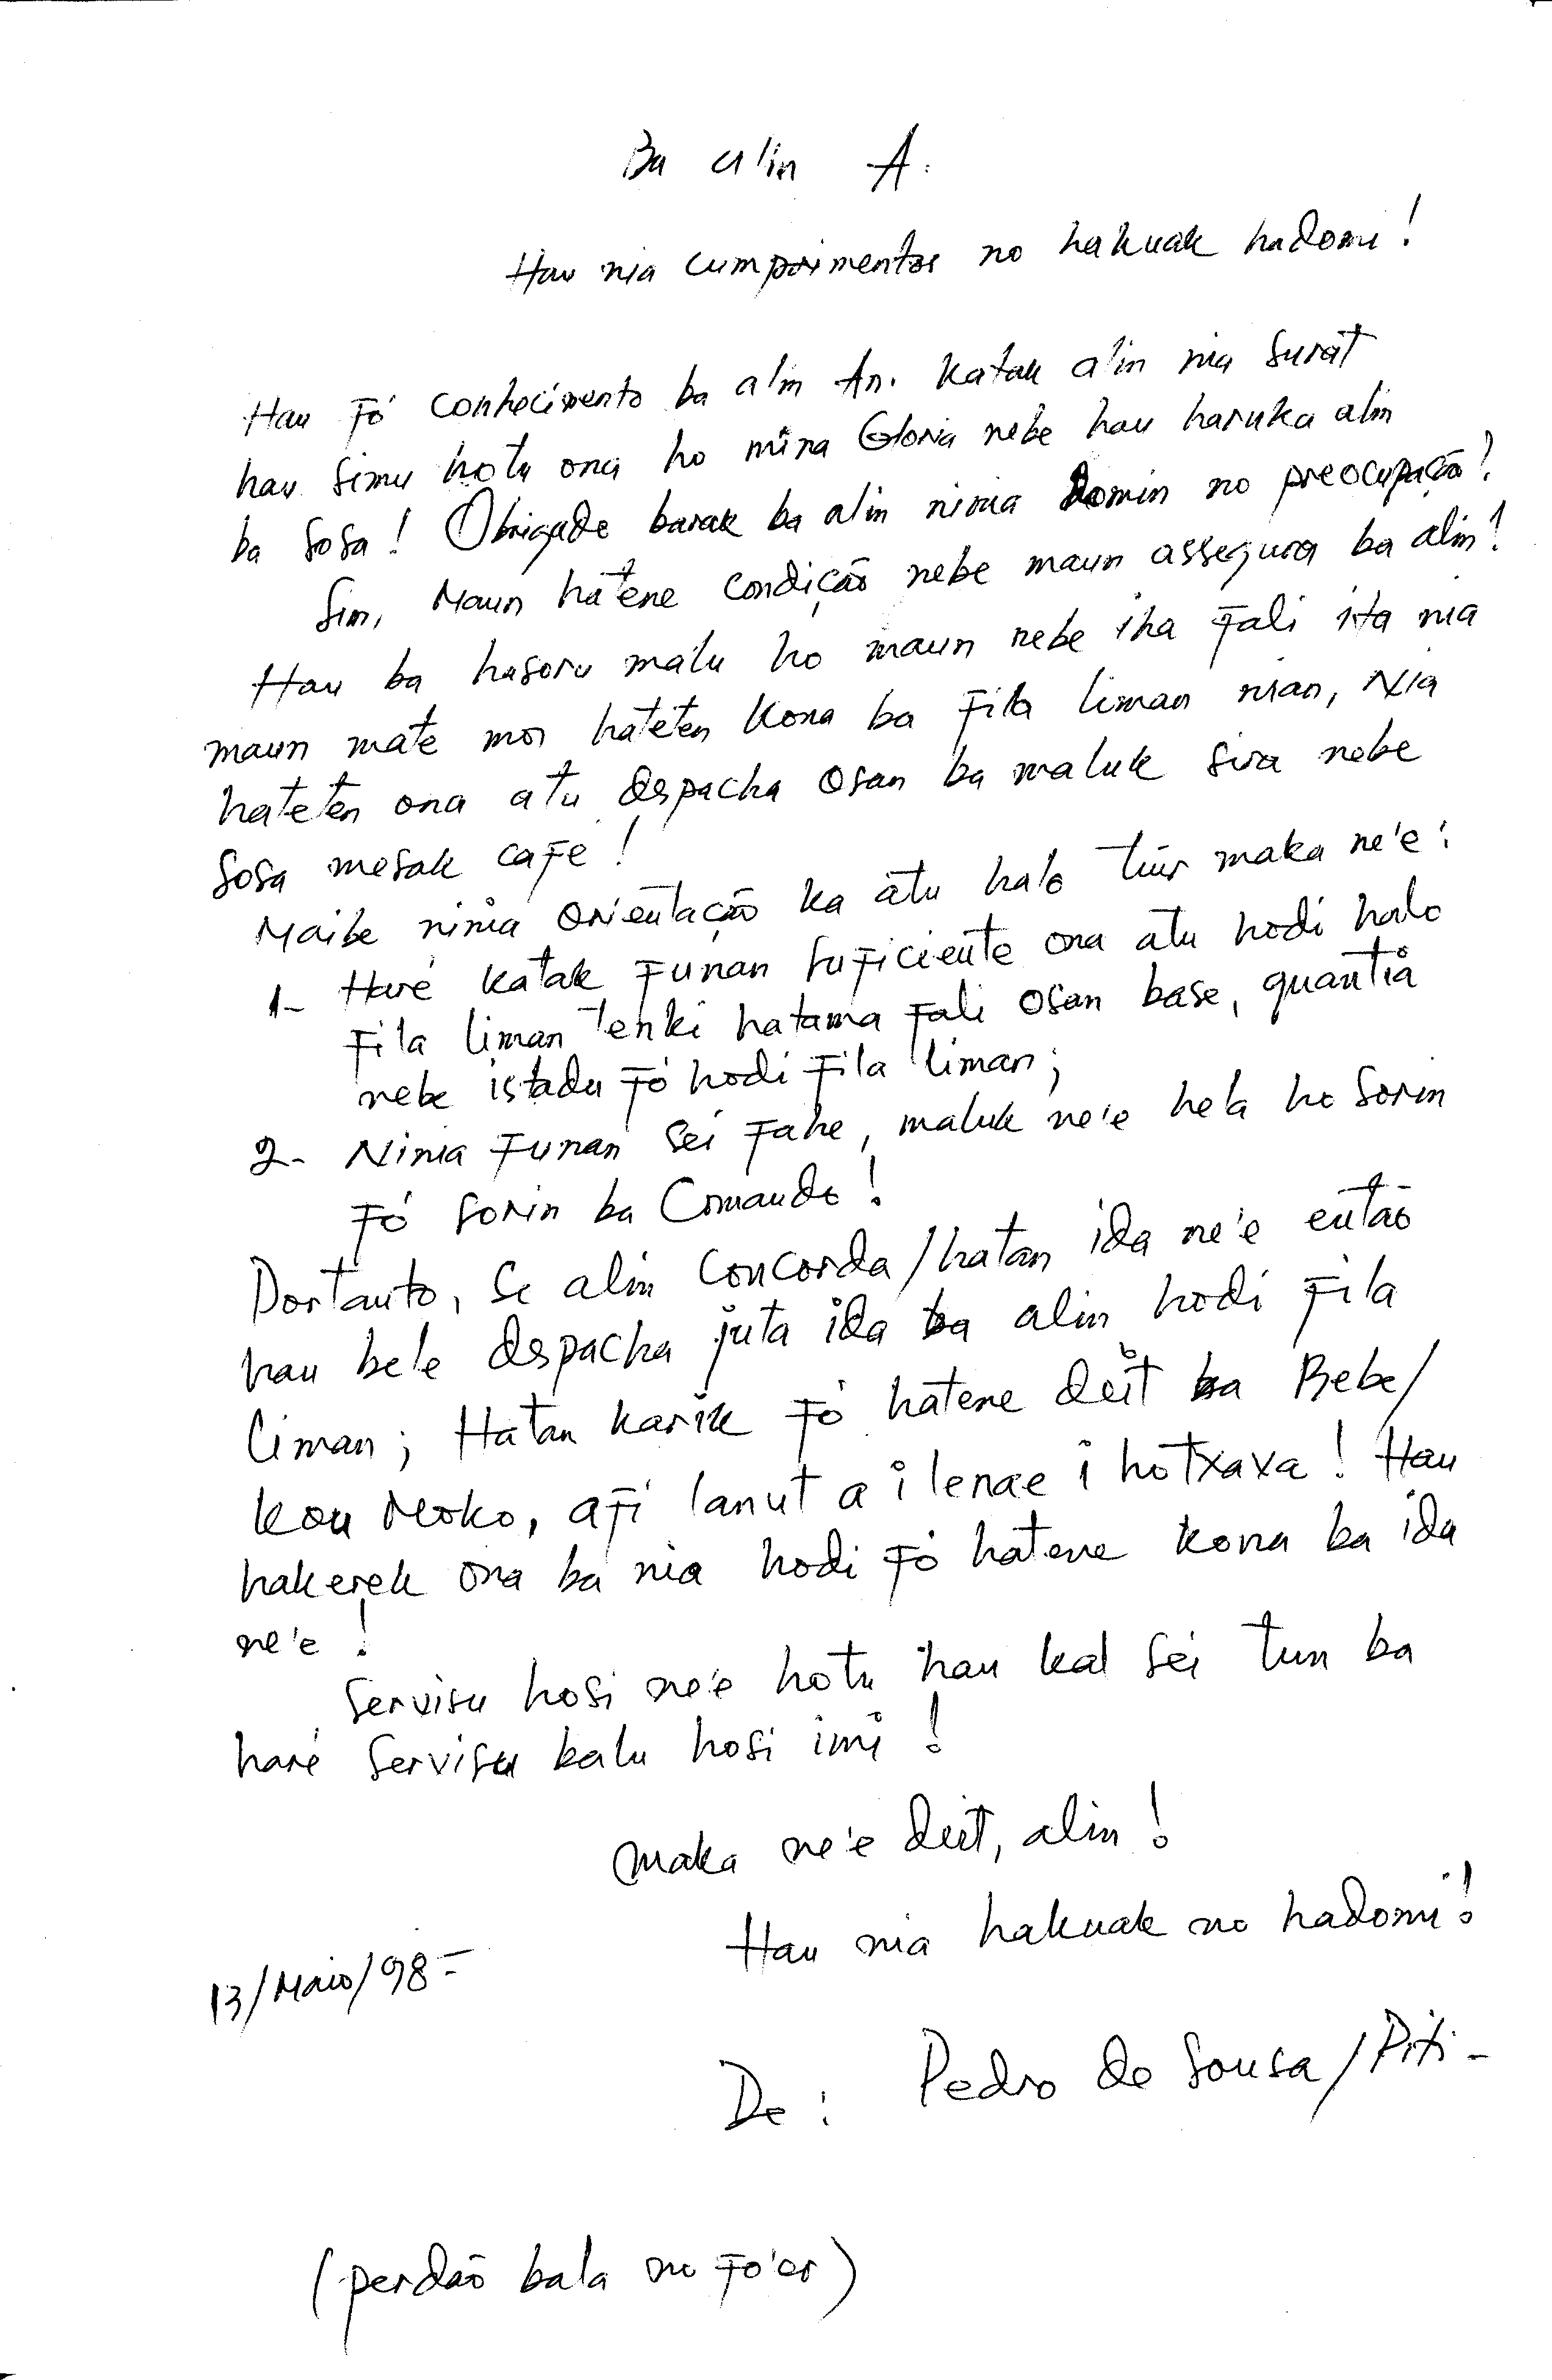 Ba alin A.
Hau nia cumprimentos no hakuak hadomi!
Hau fó conhecimento ba alin An. katak alin nia surat
hau simu hotu ona ho mina Gloria nebe hau haruka alin
ba sosa! Obrigado barak ba alin ninia domin no preocupação!
Sim, Maun hatene condição nebe maun assegura ba alin!
Hau ba hasoru malu ho maun nebe iha fali ita nia
maun mate mos hateten kona ba fila liman nian, Nia
hateten ona atu despacha osan ba maluk sira nebe
sosa mesak café!
Maibe ninia orientação ka atu halo tuir maka ne'e:
1- Haré katak funan suficiente ona atu hodi halo
fila liman tenki hatama fali osan base, quantia
nebe istadu fó hodi fila liman;
2- Ninia funan sei fahe, maluk ne'e hela ho sorin
fó sorin ba Comando!
Portanto, se alin concorda/hatan ida ne'e então
hau bele despacha juta ida ba alin hodi fila
liman; Hatan karik fó hatene deit ba Bebe/
kou Moko, afi lanut a i lenae i hotxava! Hau
hakerek ona ba nia hodi fó hatene kona ba ida
ne'e!
Servisu hosi ne'e hotu hau kal sei tun ba
haré servisu balu hosi imi!
Maka ne'e deit, alin!
Hau nia hakuak no hadomi!
13/Maio/98-
De: Pedro de Sousa/Piti-
(perdão bala no fo'er)